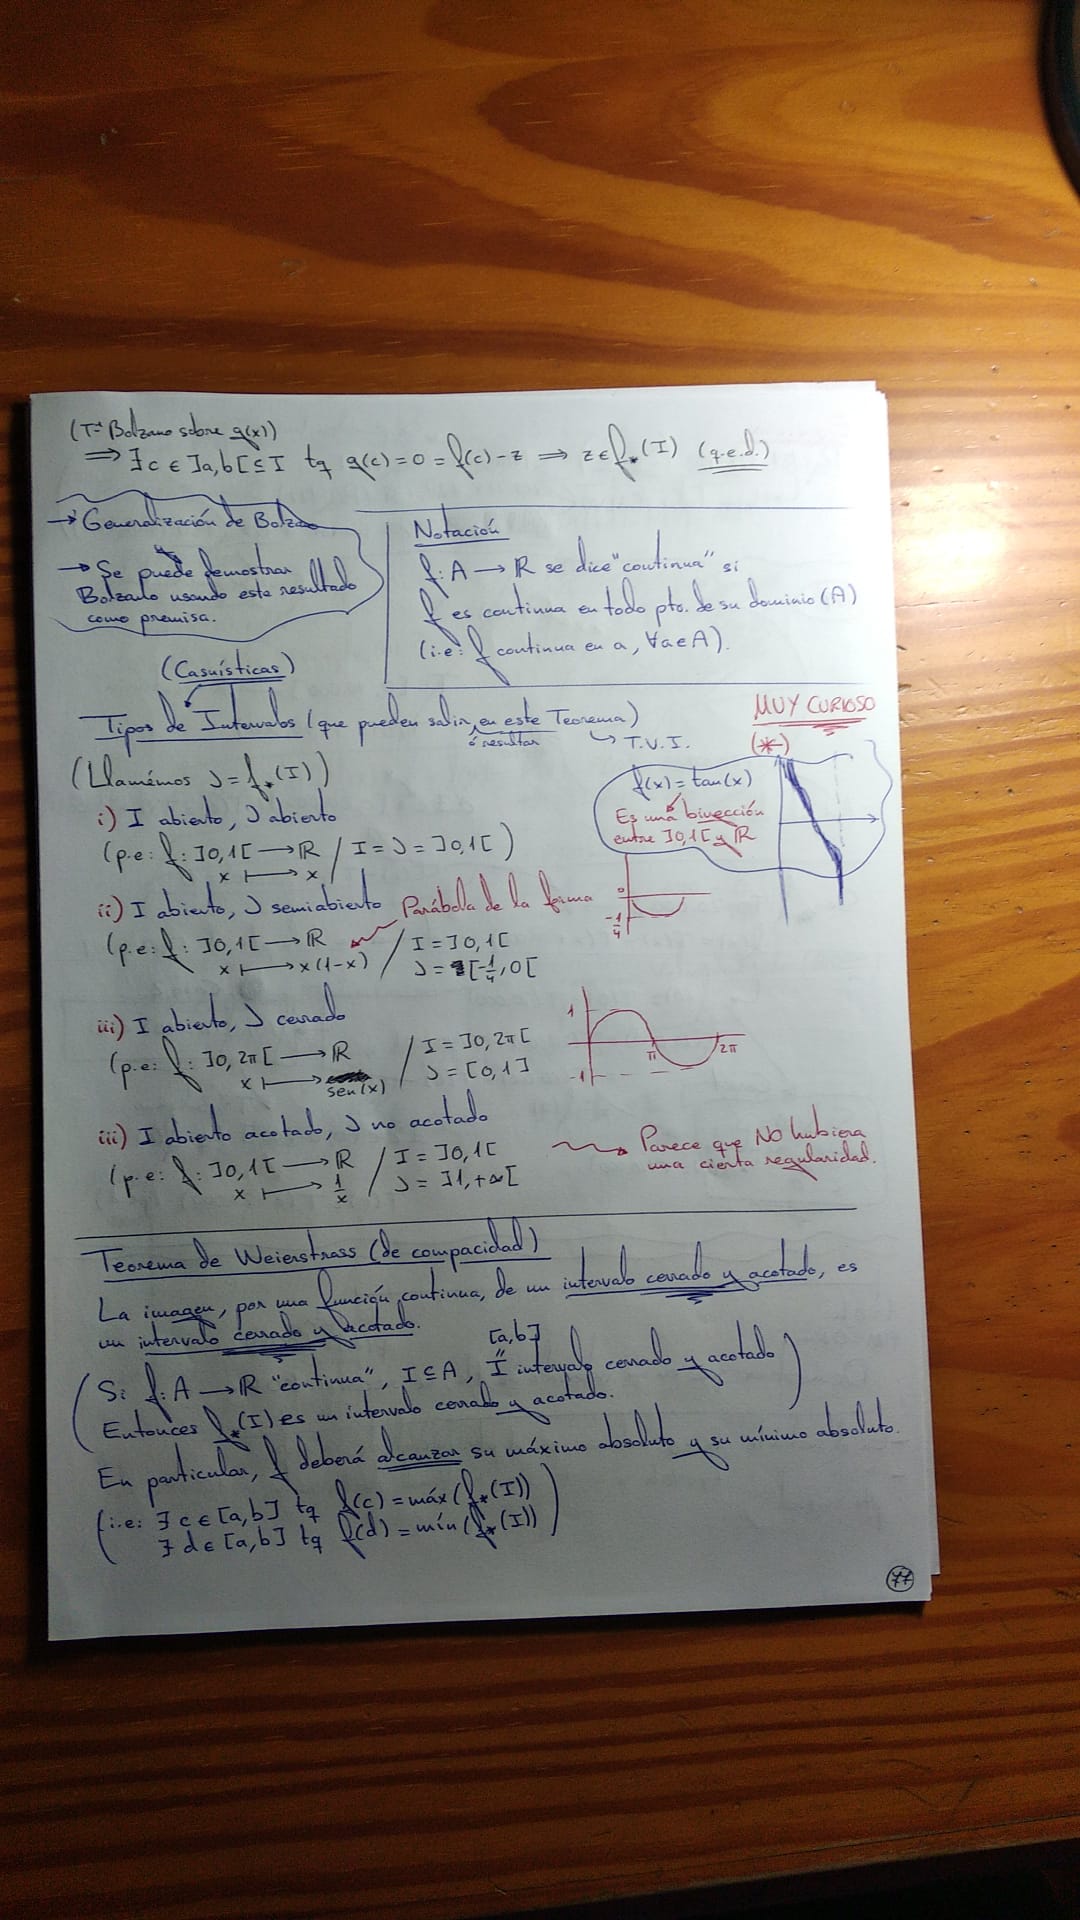 (Tª Bolzano sobre g(x))
⟹ ∃c ∈ ]a,b[ ⊆ I tq g(c)=0=f(c)-z ⟹ z∈f*(I) (q.e.d.)
→ Generalización de Bolzano
→ Se puede demostrar
Bolzano usando este resultado
como premisa.
Notación
f: A → ℝ se dice "continua" si
f es continua en todo pto. de su dominio (A)
(i.e: f continua en a, ∀a∈A).
(Casuísticas)
Tipos de Intervalos (que pueden salir en este Teorema)
ó resultar
↳ T.V.I.
MUY CURIOSO
(*)
(Llamémos J = f*(I))
f(x) = tan(x)
Es una biyección
entre ]0,1[ y ℝ
i) I abierto, J abierto
(p.e: f: ]0,1[ → ℝ / I = J = ]0,1[ )
x ↦ x
ii) I abierto, J semiabierto
Parábola de la forma
0
-1/4
(p.e: f: ]0,1[ → ℝ / I = ]0,1[
x ↦ x(1-x) / J = [-1/4, 0[
iii) I abierto, J cerrado
(p.e: f: ]0,2π[ → ℝ / I = ]0,2π[
x ↦ sen(x) / J = [0,1]
1
π
2π
-1
iii) I abierto acotado, J no acotado
(p.e: f: ]0,1[ → ℝ / I = ]0,1[
x ↦ 1/x / J = ]1,+∞[
Parece que NO hubiera
una cierta regularidad.
Teorema de Weierstrass (de compacidad)
La imagen, por una función continua, de un intervalo cerrado y acotado, es
un intervalo cerrado y acotado.
[a,b]
"
(Si f: A → ℝ "continua", I ⊆ A, I intervalo cerrado y acotado
Entonces f*(I) es un intervalo cerrado y acotado.)
En particular, f deberá alcanzar su máximo absoluto y su mínimo absoluto.
(i.e: ∃ c ∈ [a,b] tq f(c) = máx(f*(I))
∃ d ∈ [a,b] tq f(d) = mín(f*(I)))
77